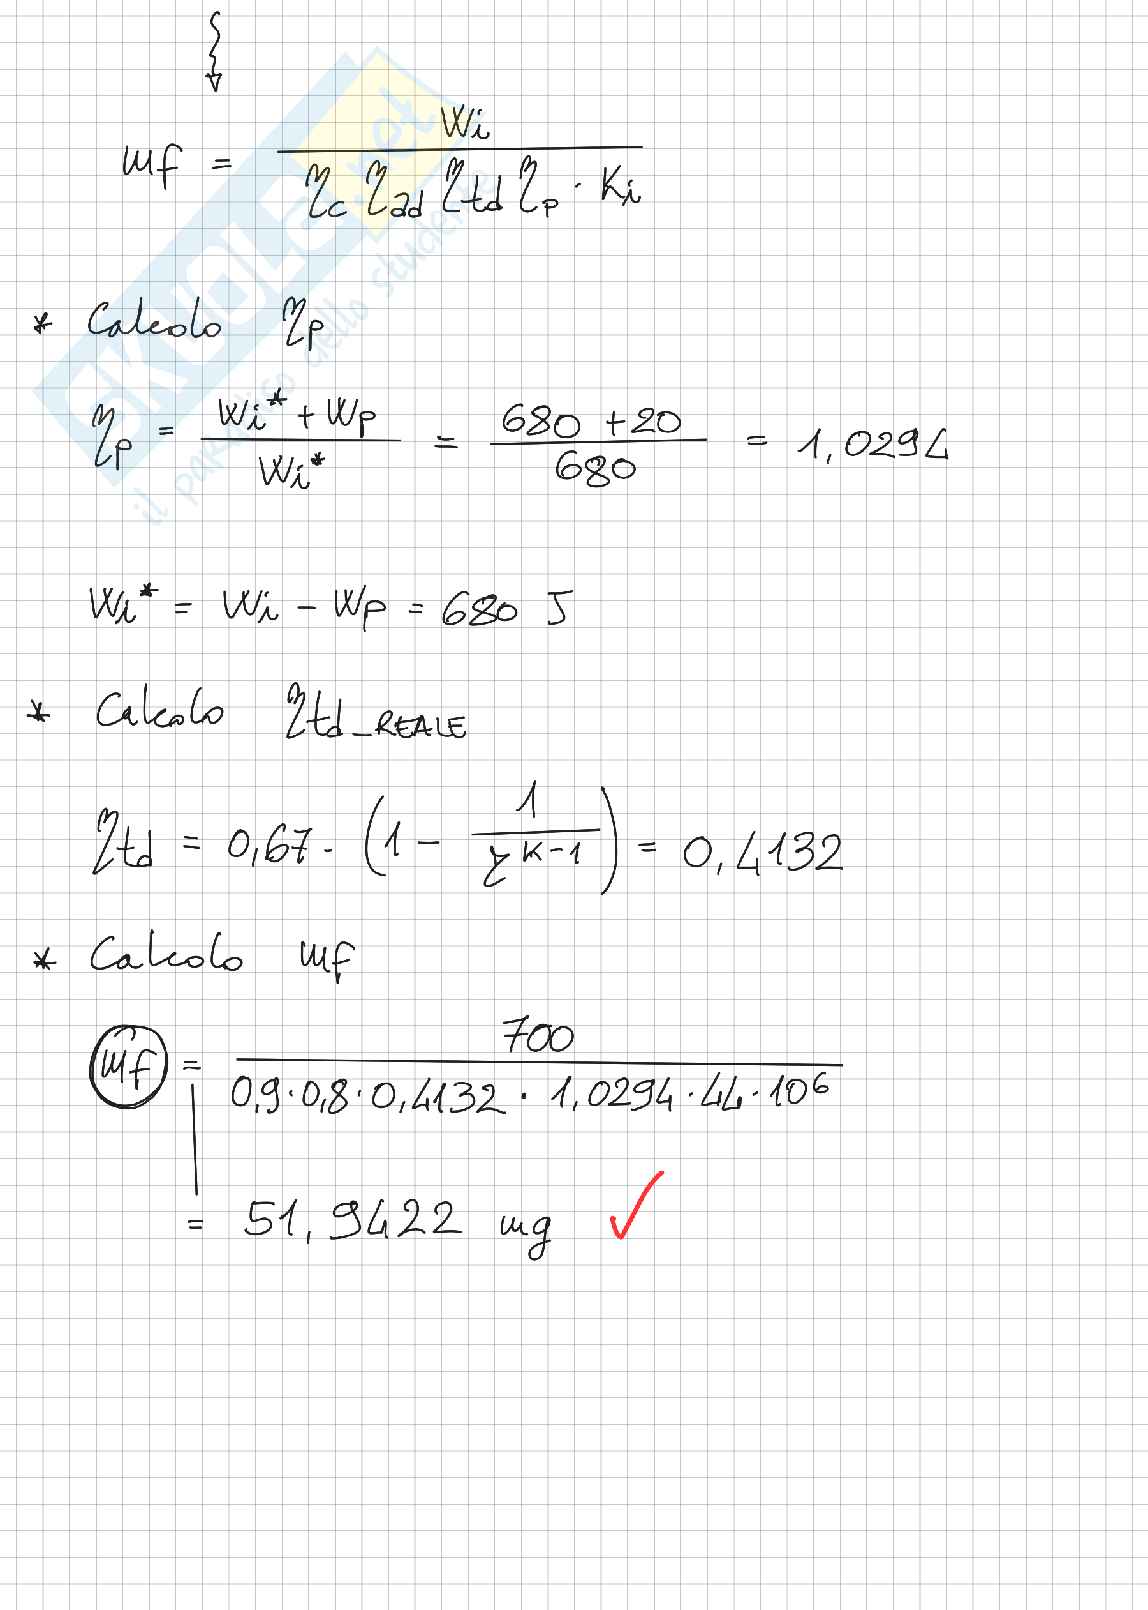 mf = Wi / (ηc ηad ηtd ηp · Ki)
* Calcolo ηp
ηp = (Wi* + Wp) / Wi* = (680 + 20) / 680 = 1,0294
Wi* = Wi - Wp = 680 J
* Calcolo ηtd_REALE
ηtd = 0,67 · (1 - 1 / r^(K-1)) = 0,4132
* Calcolo mf
mf = 700 / (0,9 · 0,8 · 0,4132 · 1,0294 · 44 · 10⁶)
= 51,9422 mg ✓
SKUOLA.net
il paradiso dello studente